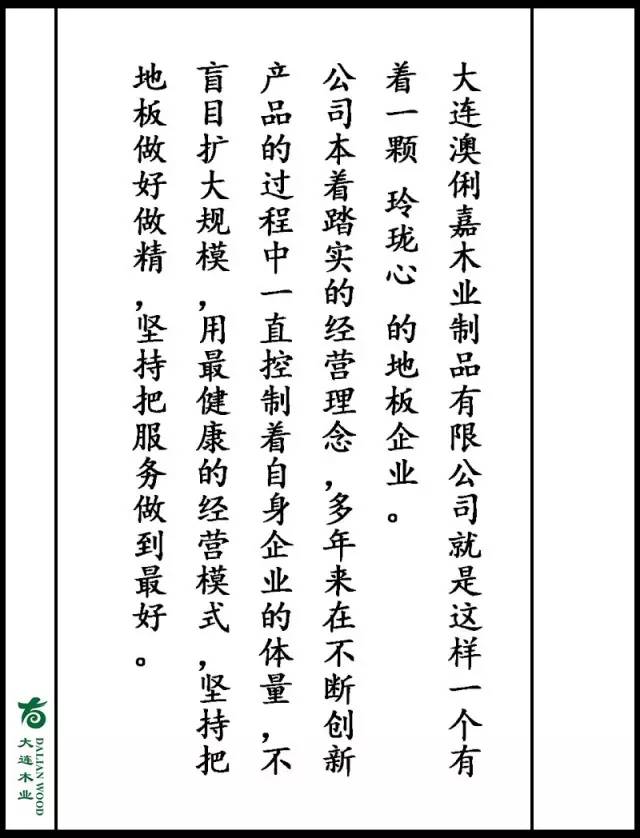 大连澳俐嘉木业制品有限公司就是这样一个有
着一颗 玲珑心 的地板企业。
公司本着踏实的经营理念，多年来在不断创新
产品的过程中一直控制着自身企业的体量，不
盲目扩大规模，用最健康的经营模式，坚持把
地板做好做精，坚持把服务做到最好。
DALIAN WOOD
大连木业